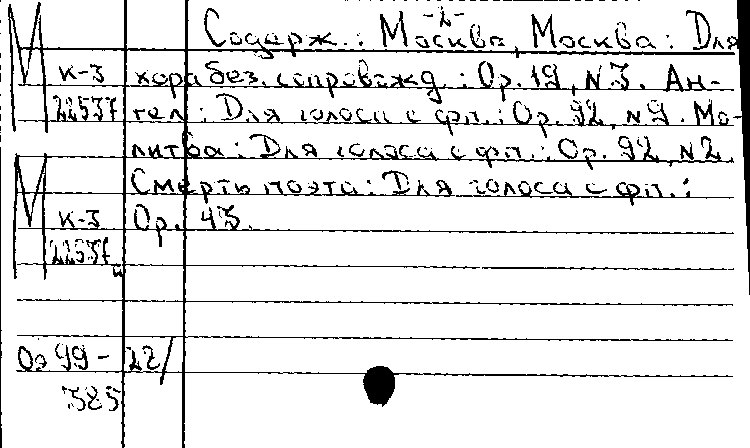 -2-
Содерж.: Москва, Москва: Для
М к-3 хора без. сопровожд.: Ор. 12, N 3. Ан-
22537 гел: Для голоса с фп.: Ор. 92, N 9. Мо-
литва: Для голоса с фп.: Ор. 92, N 2.
М Смерть поэта: Для голоса с фп.:
к-3 Ор. 43.
22537
Оэ 99 - 22/
385